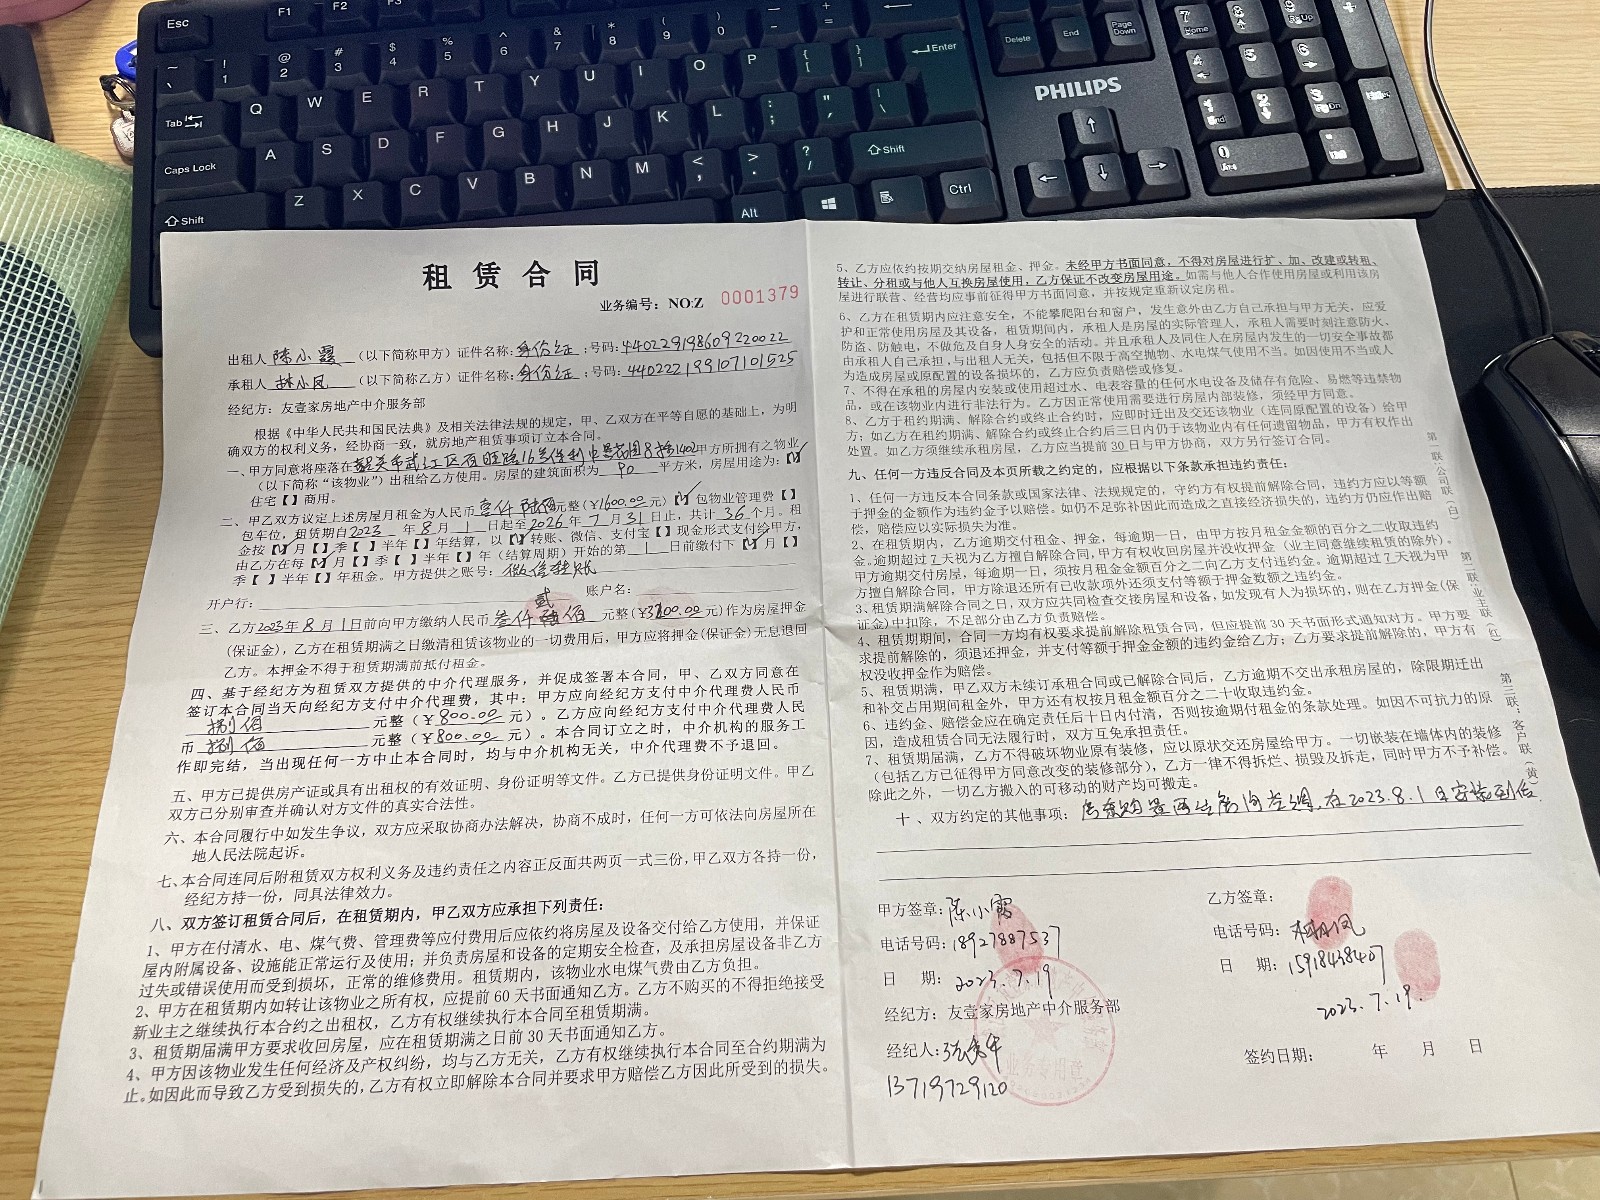 Esc
F1
F2
F3
Enter
Tab
Caps Lock
Shift
Shift
Alt
Ctrl
Delete
End
Page Down
PHILIPS
Q W E R T Y U I O P
A S D F G H J K L
Z X C V B N M
租赁合同
业务编号：NO:Z 0001379
出租人 陈小霞 （以下简称甲方）证件名称：身份证；号码：440229198609220022
承租人 林小凤 （以下简称乙方）证件名称：身份证；号码：440222199107101525
经纪方：友壹家房地产中介服务部
根据《中华人民共和国民法典》及相关法律法规的规定，甲、乙双方在平等自愿的基础上，为明
确双方的权利义务，经协商一致，就房地产租赁事项订立本合同。
一、甲方同意将座落在韶关市武江区百旺路16号保利中景花园8栋1402甲方所拥有之物业
（以下简称“该物业”）出租给乙方使用。房屋的建筑面积为 90 平方米，房屋用途为：【✓】
住宅【 】商用。
二、甲乙双方议定上述房屋月租金为人民币壹仟陆佰元整（¥1600.00元）【✓】包物业管理费【 】
包车位，租赁期自2023年8月1日起至2026年7月31日止，共计36个月。租
金按【✓】月【 】季【 】半年【 】年结算，以【✓】转账、微信、支付宝【 】现金形式支付给甲方，
由乙方在每【✓】月【 】季【 】半年【 】年（结算周期）开始的第 1 日前缴付下【✓】月【 】
季【 】半年【 】年租金。甲方提供之账号：微信转账
开户行： 账户名：
三、乙方2023年8月1日前向甲方缴纳人民币叁仟贰佰元整（¥3200.00元）作为房屋押金
（保证金），乙方在租赁期满之日缴清租赁该物业的一切费用后，甲方应将押金(保证金)无息退回
乙方。本押金不得于租赁期满前抵付租金。
四、基于经纪方为租赁双方提供的中介代理服务，并促成签署本合同，甲、乙双方同意在
签订本合同当天向经纪方支付中介代理费，其中：甲方应向经纪方支付中介代理费人民币
捌佰 元整（¥800.00元）。乙方应向经纪方支付中介代理费人民
币 捌佰 元整（¥800.00元）。本合同订立之时，中介机构的服务工
作即完结，当出现任何一方中止本合同时，均与中介机构无关，中介代理费不予退回。
五、甲方已提供房产证或具有出租权的有效证明、身份证明等文件。乙方已提供身份证明文件。甲乙
双方已分别审查并确认对方文件的真实合法性。
六、本合同履行中如发生争议，双方应采取协商办法解决，协商不成时，任何一方可依法向房屋所在
地人民法院起诉。
七、本合同连同后附租赁双方权利义务及违约责任之内容正反面共两页一式三份，甲乙双方各持一份，
经纪方持一份，同具法律效力。
八、双方签订租赁合同后，在租赁期内，甲乙双方应承担下列责任：
1、甲方在付清水、电、煤气费、管理费等应付费用后应依约将房屋及设备交付给乙方使用，并保证
屋内附属设备、设施能正常运行及使用；并负责房屋和设备的定期安全检查，及承担房屋设备非乙方
过失或错误使用而受到损坏，正常的维修费用。租赁期内，该物业水电煤气费由乙方负担。
2、甲方在租赁期内如转让该物业之所有权，应提前60天书面通知乙方。乙方不购买的不得拒绝接受
新业主之继续执行本合约之出租权，乙方有权继续执行本合同至租赁期满。
3、租赁期届满甲方要求收回房屋，应在租赁期满之日前30天书面通知乙方。
4、甲方因该物业发生任何经济及产权纠纷，均与乙方无关，乙方有权继续执行本合同至合约期满为
止。如因此而导致乙方受到损失的，乙方有权立即解除本合同并要求甲方赔偿乙方因此所受到的损失。
5、乙方应依约按期交纳房屋租金、押金。未经甲方书面同意，不得对房屋进行扩、加、改建或转租、
转让、分租或与他人互换房屋使用，乙方保证不改变房屋用途。如需与他人合作使用房屋或利用该房
屋进行联营、经营均应事前征得甲方书面同意，并按规定重新议定房租。
6、乙方在租赁期内应注意安全，不能攀爬阳台和窗户，发生意外由乙方自己承担与甲方无关，应爱
护和正常使用房屋及其设备，租赁期间内，承租人是房屋的实际管理人，承租人需要时刻注意防火、
防盗、防触电，不做危及自身人身安全的活动。并且承租人及同住人在房屋内发生的一切安全事故都
由承租人自己承担，与出租人无关，包括但不限于高空抛物、水电煤气使用不当。如因使用不当或人
为造成房屋或原配置的设备损坏的，乙方应负责赔偿或修复。
7、不得在承租的房屋内安装或使用超过水、电表容量的任何水电设备及储存有危险、易燃等违禁物
品，或在该物业内进行非法行为。乙方因正常使用需要进行房屋内部装修，须经甲方同意。
8、乙方于租约期满、解除合约或终止合约时，应即时迁出及交还该物业（连同原配置的设备）给甲
方；如乙方在租约期满、解除合约或终止合约后三日内仍于该物业内有任何遗留物品，甲方有权作出
处置。如乙方须继续承租房屋，乙方应当提前30日与甲方协商，双方另行签订合同。
九、任何一方违反合同及本页所载之约定的，应根据以下条款承担违约责任：
1、任何一方违反本合同条款或国家法律、法规规定的，守约方有权提前解除合同，违约方应以等额
于押金的金额作为违约金予以赔偿。如仍不足弥补因此而造成之直接经济损失的，违约方仍应作出赔
偿，赔偿应以实际损失为准。
2、在租赁期内，乙方逾期交付租金、押金，每逾期一日，由甲方按月租金金额的百分之二收取违约
金。逾期超过7天视为乙方擅自解除合同，甲方有权收回房屋并没收押金（业主同意继续租赁的除外）。
甲方逾期交付房屋，每逾期一日，须按月租金金额百分之二向乙方支付违约金。逾期超过7天视为甲
方擅自解除合同，甲方除退还所有已收款项外还须支付等额于押金数额之违约金。
3、租赁期满解除合同之日，双方应共同检查交接房屋和设备，如发现有人为损坏的，则在乙方押金(保
证金)中扣除，不足部分由乙方负责赔偿。
4、租赁期期间，合同一方均有权要求提前解除租赁合同，但应提前30天书面形式通知对方。甲方要
求提前解除的，须退还押金，并支付等额于押金金额的违约金给乙方；乙方要求提前解除的，甲方有
权没收押金作为赔偿。
5、租赁期满，甲乙双方未续订承租合同或已解除合同后，乙方逾期不交出承租房屋的，除限期迁出
和补交占用期间租金外，甲方还有权按月租金额百分之二十收取违约金。
6、违约金、赔偿金应在确定责任后十日内付清，否则按逾期付租金的条款处理。如因不可抗力的原
因，造成租赁合同无法履行时，双方互免承担责任。
7、租赁期届满，乙方不得破坏物业原有装修，应以原状交还房屋给甲方。一切嵌装在墙体内的装修
（包括乙方已征得甲方同意改变的装修部分），乙方一律不得拆烂、损毁及拆走，同时甲方不予补偿。
除此之外，一切乙方搬入的可移动的财产均可搬走。
十、双方约定的其他事项： 在2023.8.1日安装到位
第一联：公司联（白）
第二联：业主联（红）
第三联：客户联（黄）
甲方签章：陈小霞
电话号码：18927887537
日 期：2023.7.19
经纪方：友壹家房地产中介服务部
经纪人：
13719729120
业务专用章
乙方签章：
电话号码：林小凤
日 期：15918438407
2023.7.19.
签约日期： 年 月 日